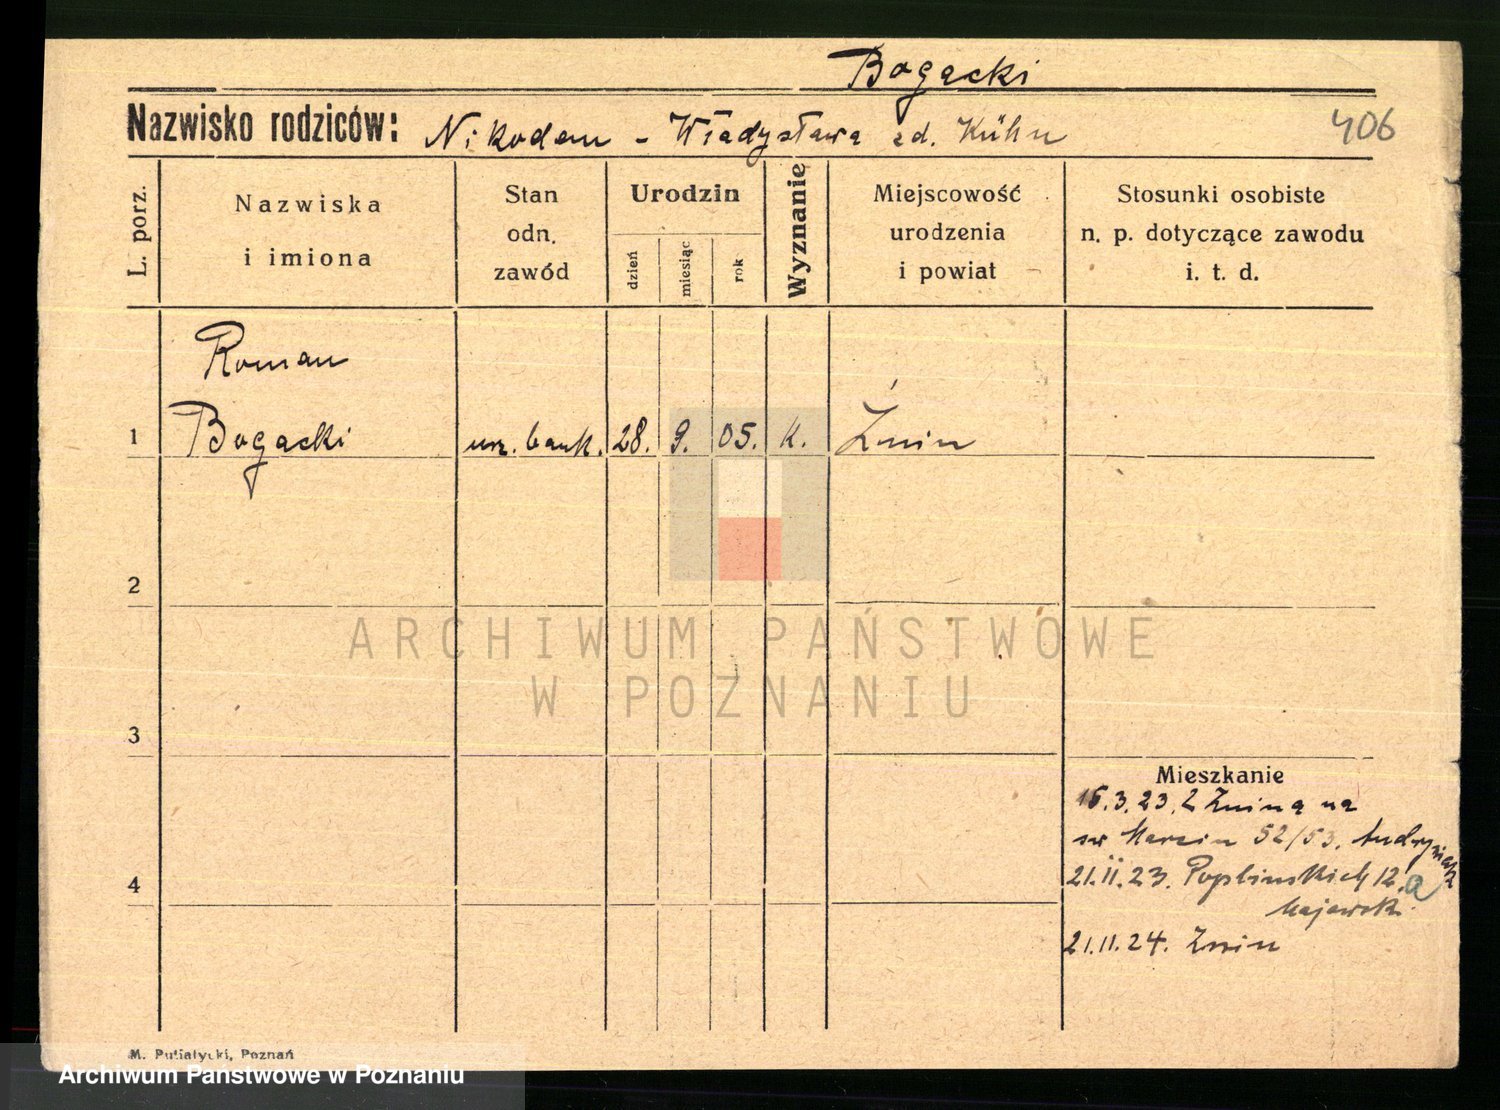 Bogacki
Nazwisko rodziców: Nikodem - Władysława zd. Kühn 406
L. porz.
Nazwiska
i imiona
Stan
odn.
zawód
Urodzin
dzień
miesiąc
rok
Wyznanie
Miejscowość
urodzenia
i powiat
Stosunki osobiste
n. p. dotyczące zawodu
i. t. d.
Roman
1 Bogacki urz. bank. 28. 9. 05. k. Żnin
2
ARCHIWUM PAŃSTWOWE
W POZNANIU
3
Mieszkanie
15.3.23. Z Żnina na
św Marcin 52/53.
4
21.II.23. Poplińskich 12 a
21.11.24. Żnin
M. Putiatycki, Poznań
Archiwum Państwowe w Poznaniu